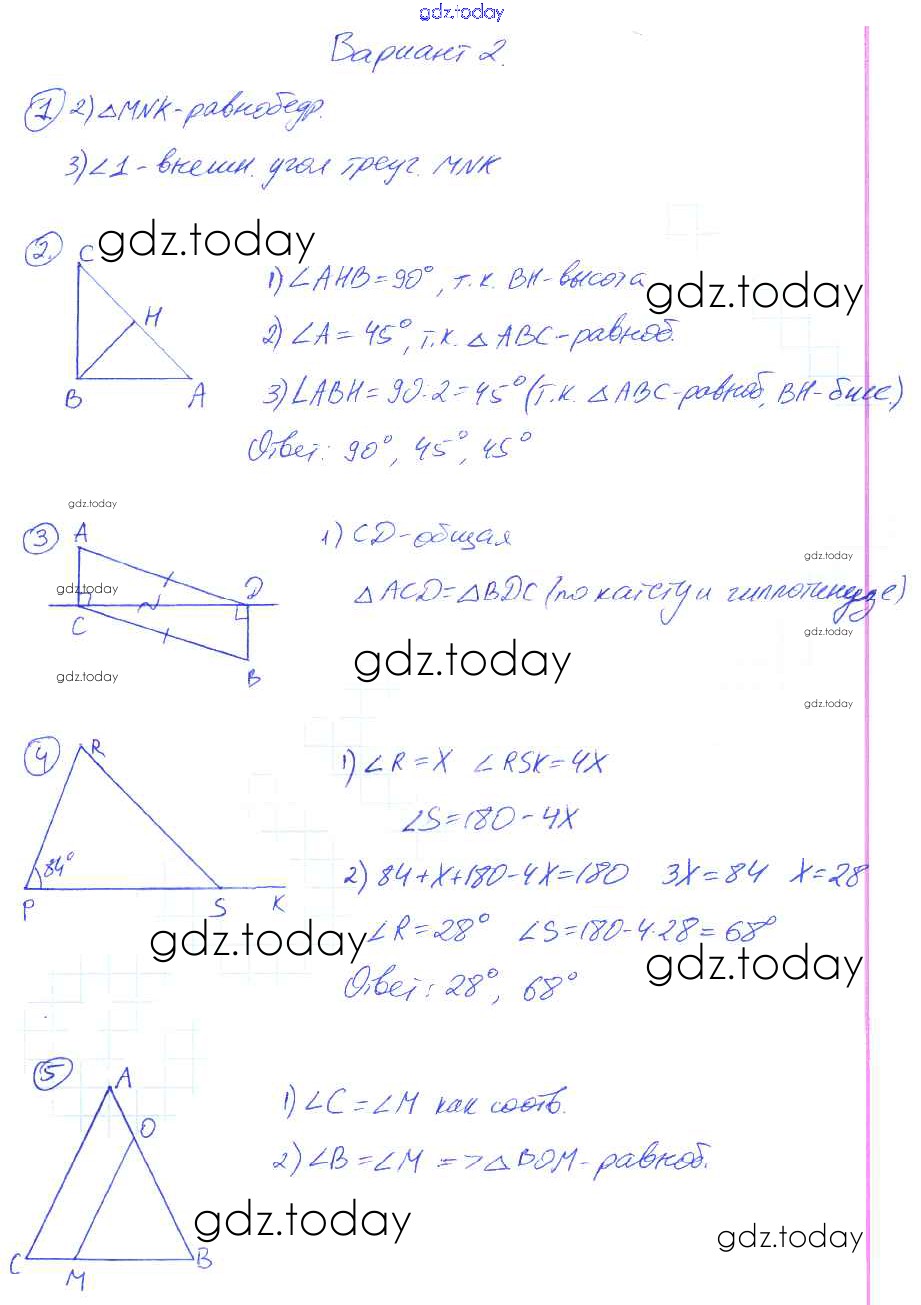 gdz.today
Вариант 2.
1 2) △MNK-равнобедр.
3) ∠1 - внешн. угол треуг. MNK
2. gdz.today
C
H
B A
1) ∠AHB = 90°, т.к. BH-высота
gdz.today
2) ∠A = 45°, т.к. △ABC-равноб.
3) ∠ABH = 90·2 = 45° (т.к. △ABC-равноб, BH-бисс.)
Ответ: 90°, 45°, 45°
gdz.today
3 A
D
C
B
1) CD-общая
gdz.today
gdz.today
△ACD = △BDC (по катету и гиппотенузе)
gdz.today
gdz.today
gdz.today
gdz.today
4 R
84°
P S K
1) ∠R = X ∠RSK = 4X
∠S = 180 - 4X
2) 84+X+180-4X=180 3X=84 X=28
gdz.today
∠R = 28° ∠S = 180-4·28 = 68°
gdz.today
Ответ: 28°, 68°
5 A
O
C M B
1) ∠C = ∠M как соотв.
2) ∠B = ∠M => △BOM-равноб.
gdz.today
gdz.today